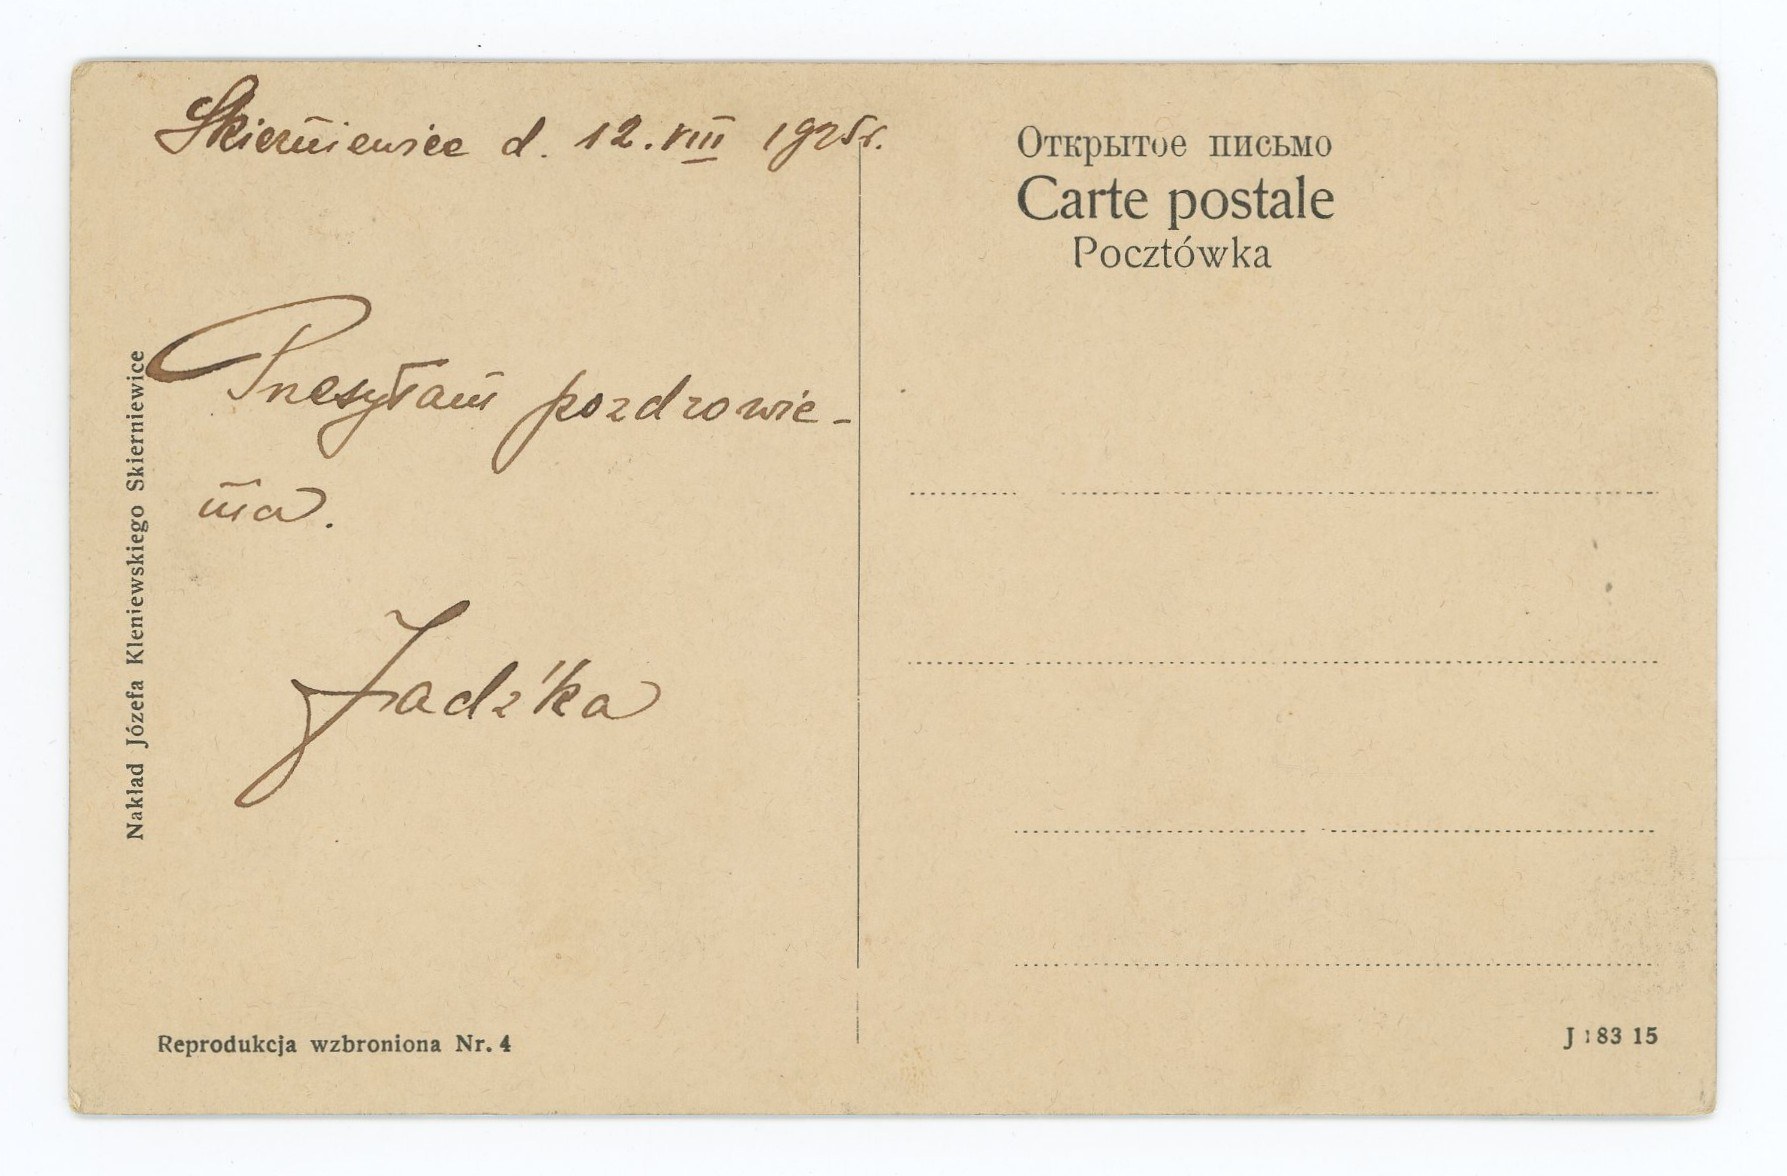 Skierniewice d. 12. VIII 1925r.
Przesyłam pozdrowie-
nia.
Jadźka
Nakład Józefa Kleniewskiego Skierniewice
Reprodukcja wzbroniona Nr. 4
Открытое письмо
Carte postale
Pocztówka
J 183 15